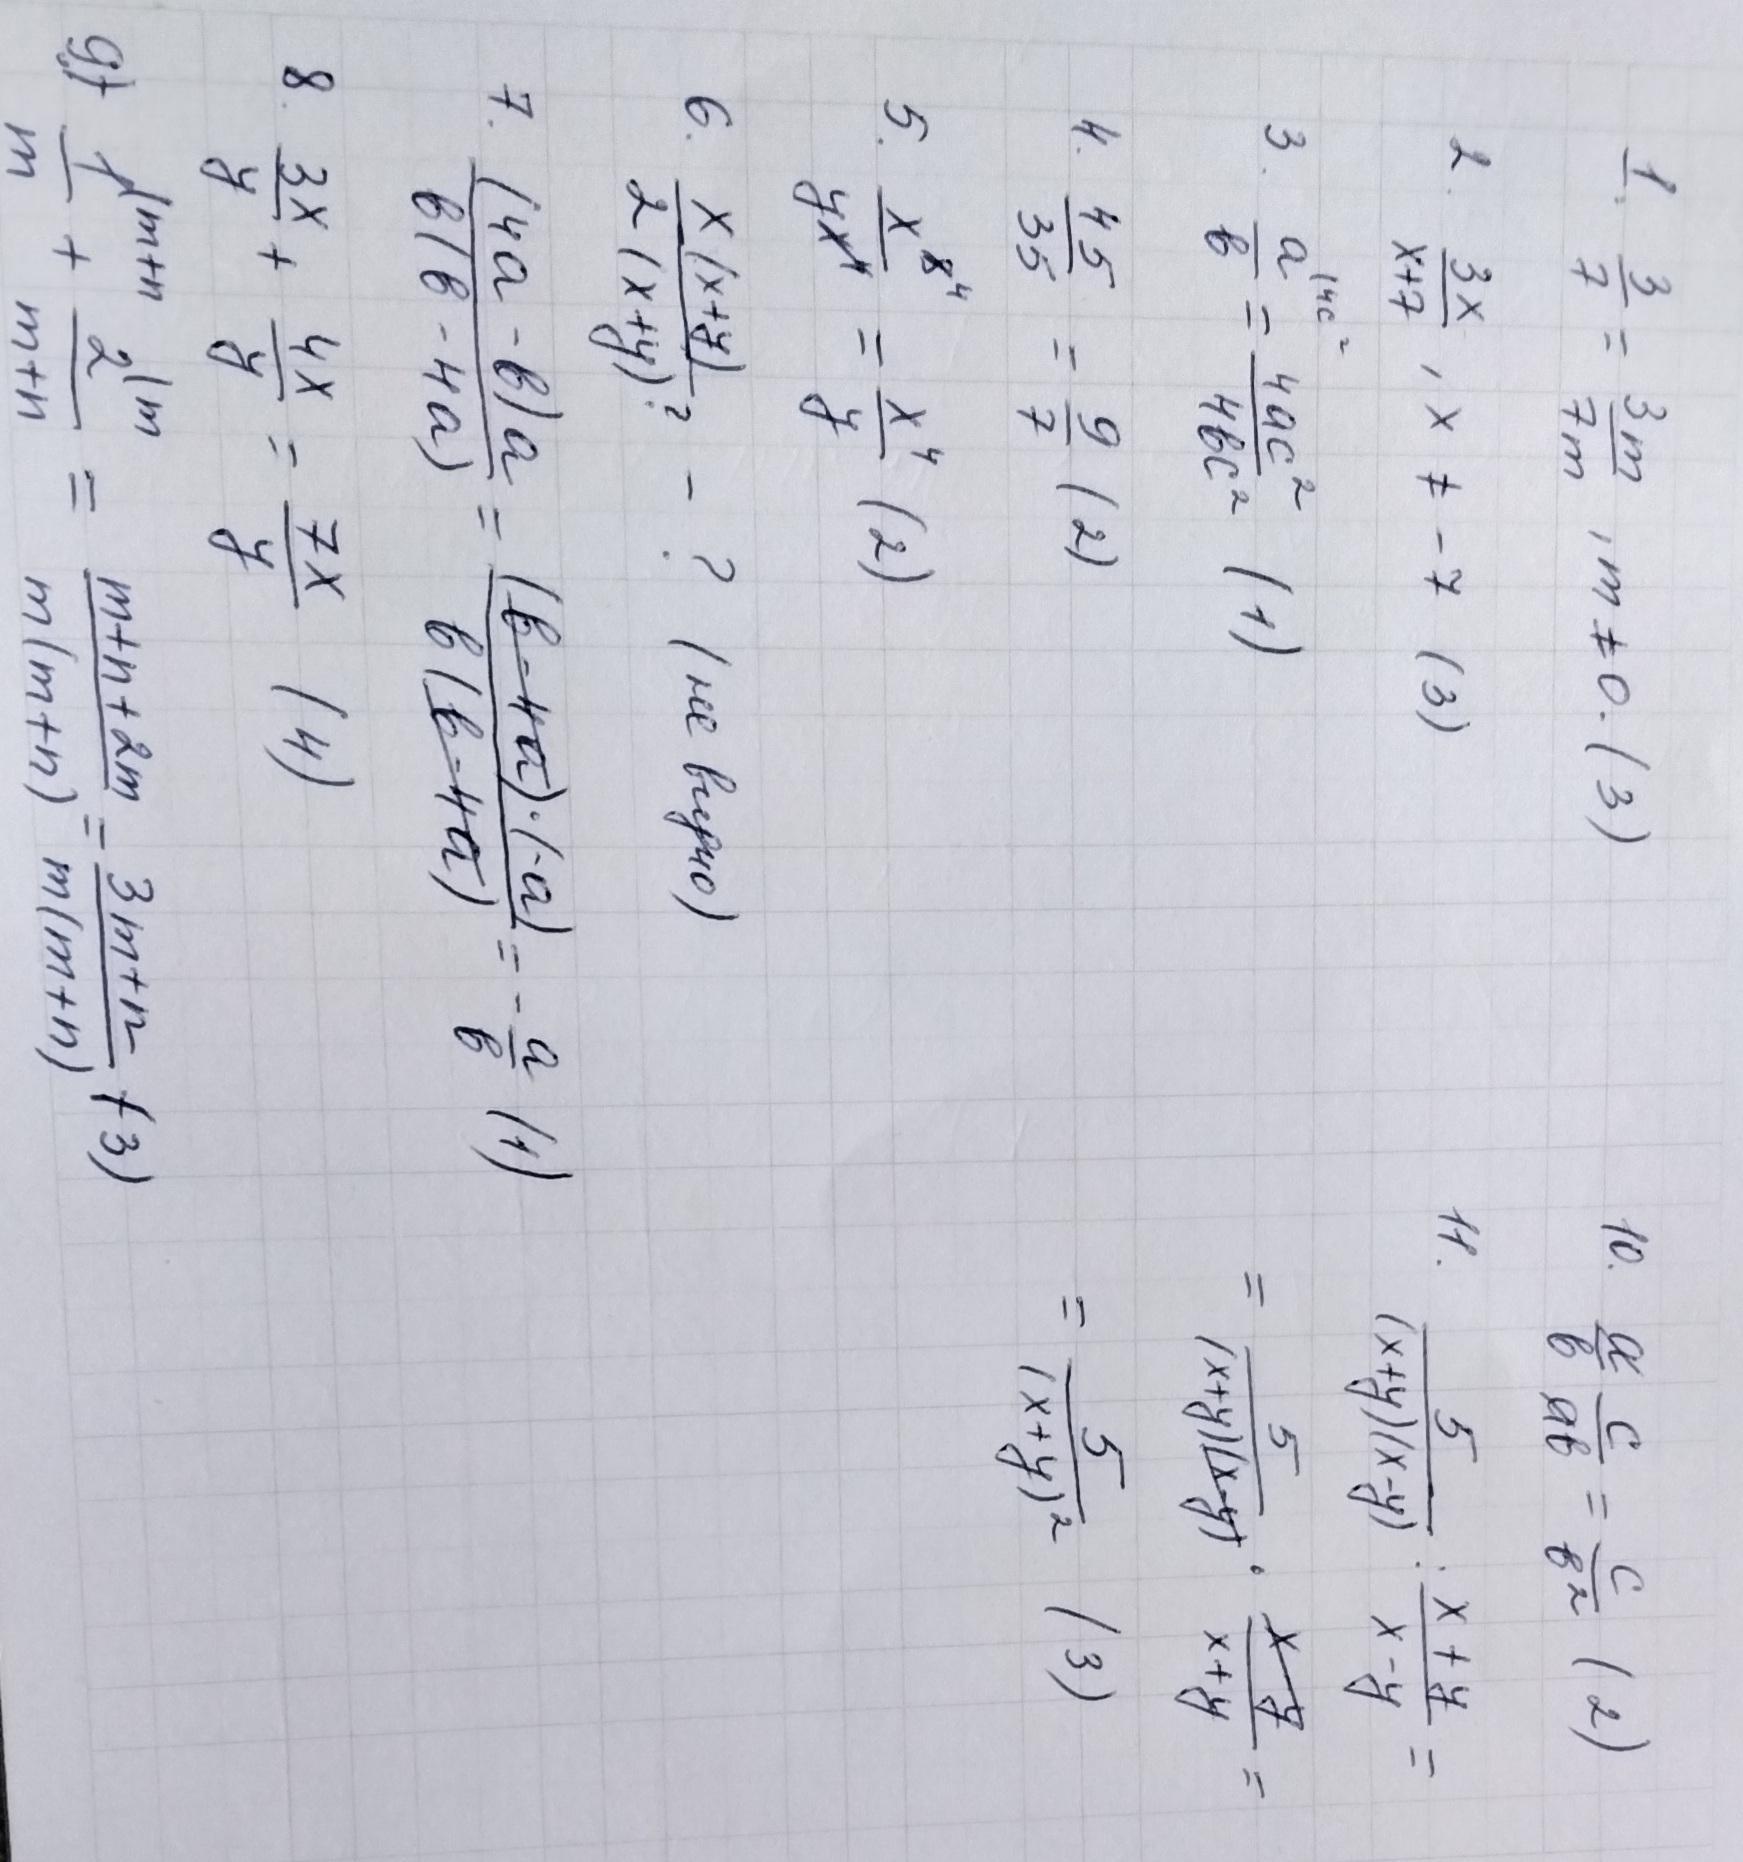 1. 3/7 = 3m/7m , m ≠ 0. (3)
2. 3x/(x+7) , x ≠ -7 (3)
3. a/в |4c² = 4ac²/4вc² (1)
4. 45/35 = 9/7 (2)
5. x⁸ ⁴/yx⁴ = x⁴/y (2)
6. x(x+y)/2(x+y)² - ? (не верно)
7. (4a - в)a/в(в - 4a) = (в - 4a)·(-a)/в(в - 4a) = - a/в (1)
8. 3x/y + 4x/y = 7x/y (4)
9) 1/m |m+n + 2/(m+n) |m = (m+n+2m)/m(m+n) = (3m+n)/m(m+n) (3)
10. a/в c/aв = c/в² (2)
11. 5/(x+y)(x-y) : (x+y)/(x-y) =
= 5/(x+y)(x-y) · (x-y)/(x+y) =
= 5/(x+y)² (3)